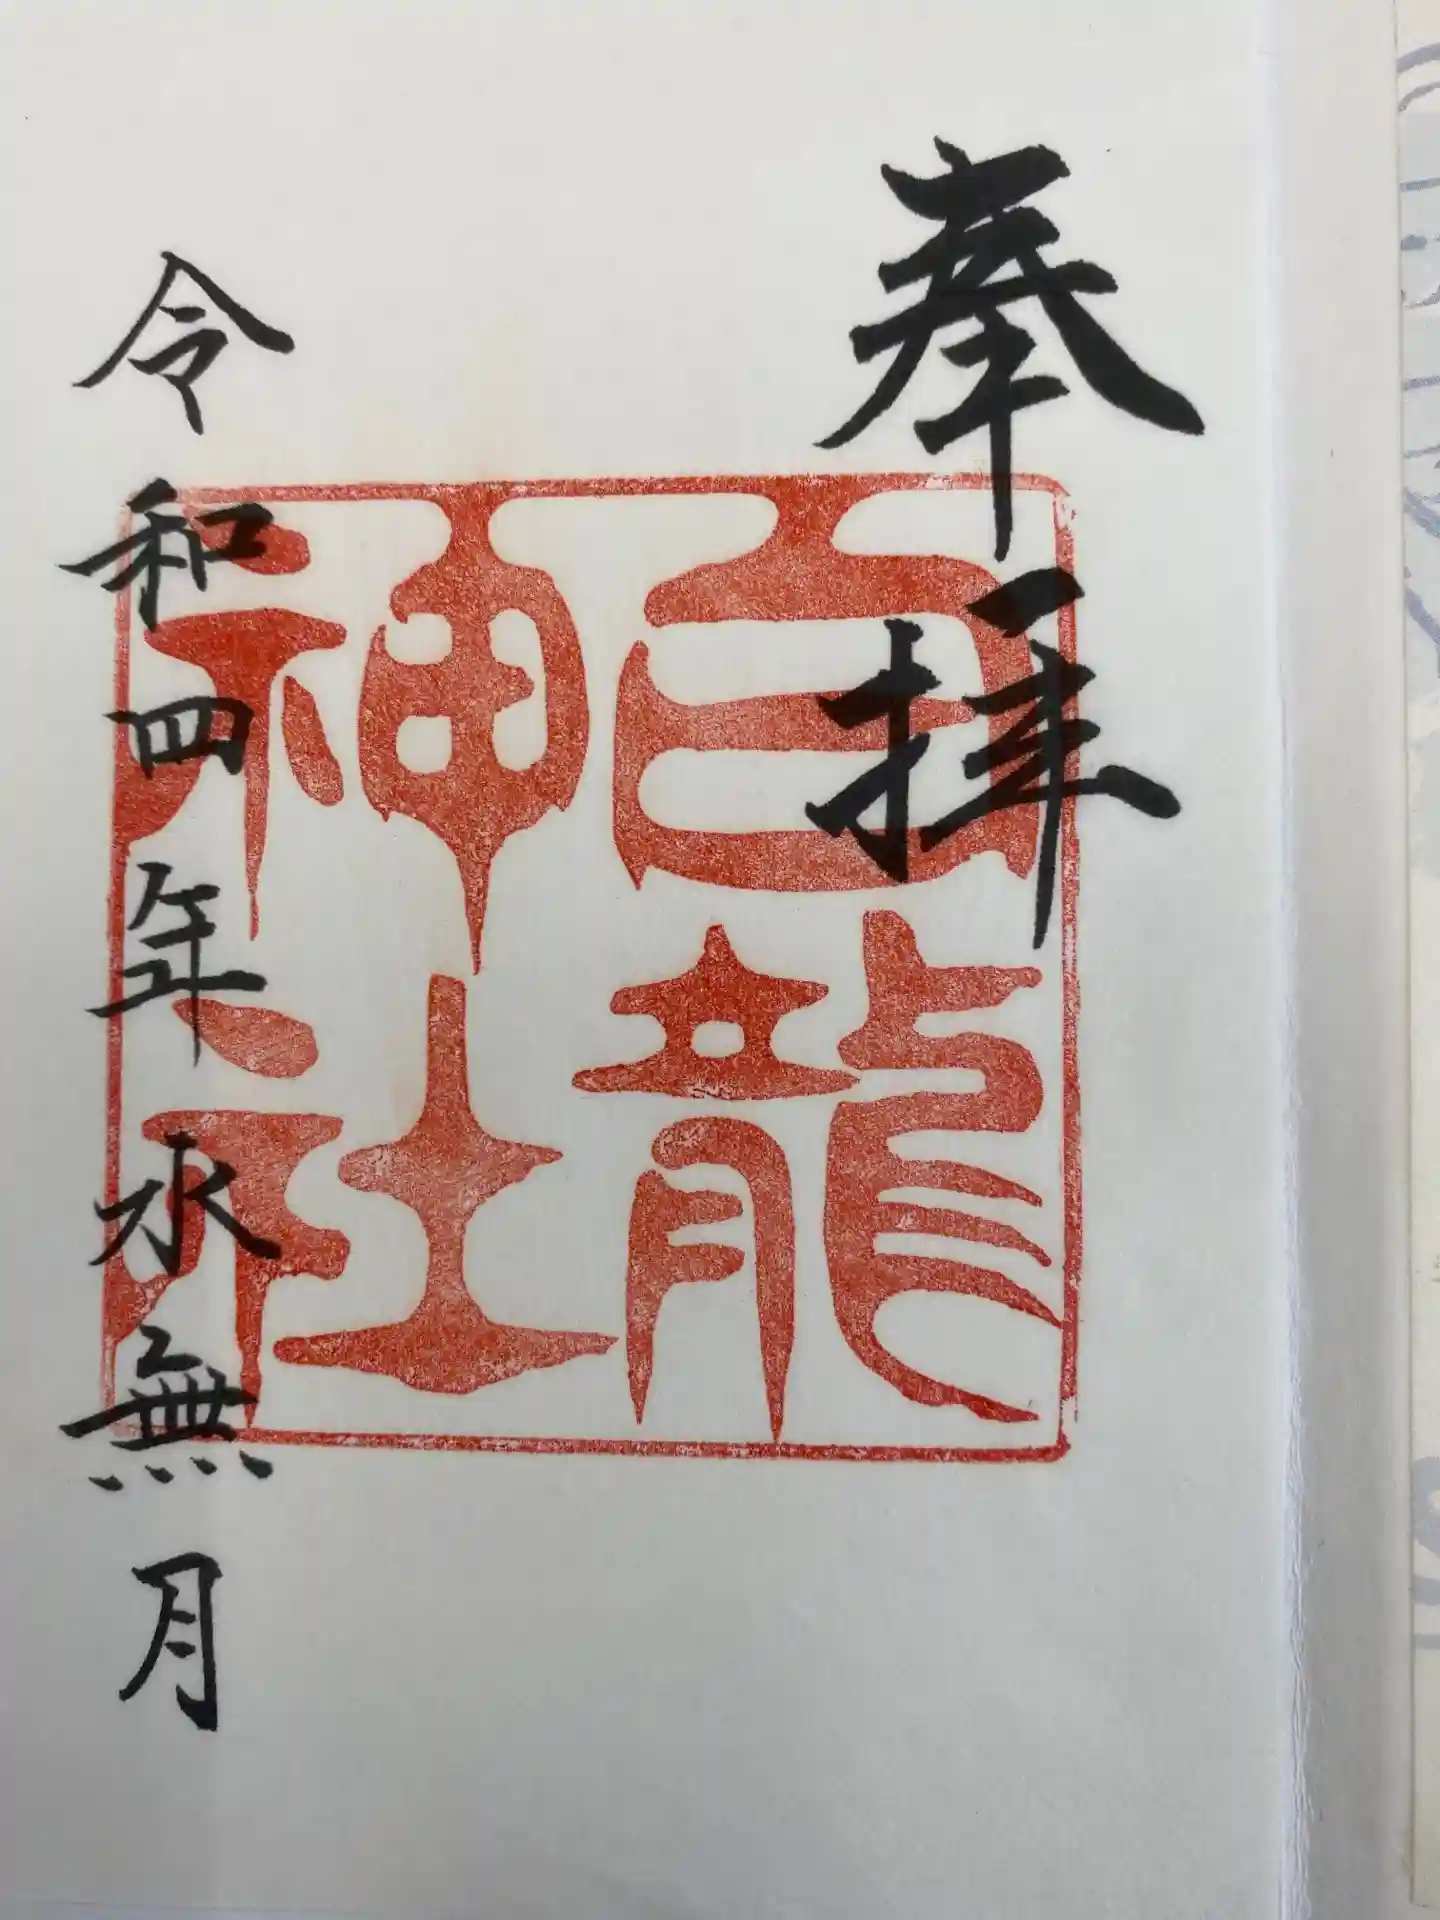 奉拝
白龍
神社
令和四年水無月